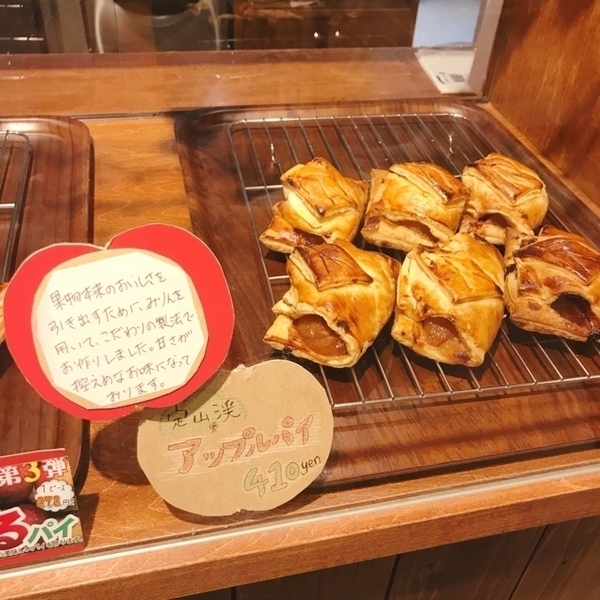 果物本来のおいしさを
引き出すために、みりんを
用いて、こだわりの製法で
お作りしました。甘さが
控えめなお味になって
おります。
定山渓
アップルパイ
410yen
第3弾
1ピース
272円
るパイ